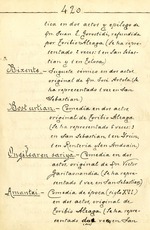 420
tica en dos actos y epílogo de
D. Juan I. Iruretagoyena, refundida
por Toribio Alzaga. (Se ha repre-
sentado 1 vez: en San Sebastian y
1 en Tolosa)
Bixente. - Juguete cómico en dos actos,
original de D. José
ha representado 1 vez en San
Sebastian)
Bost urtian. - Comedia en dos actos
original de Toribio Alzaga.
(Se ha representado 1 vez
en San Sebastian, 1 en Irun,
1 en Rentería y 1 en Andoain)
sariya. - Comedia en
dos actos, original de D. Victor
Garitaonandia (Se ha repre-
sentado 1 vez en San Sebastian)
Amantxi. - Comedia de época (siglo XVI)
en dos actos, original de
Toribio Alzaga. (Se ha repre-
sentado dos veces en San